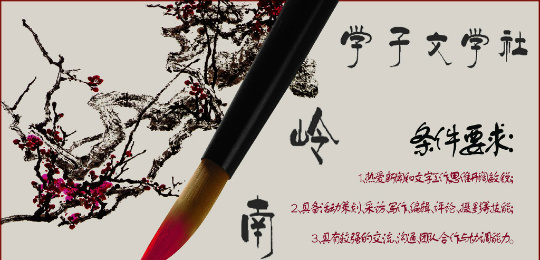 学子文学社
岭
南
条件要求:
1.热爱新闻和文字工作思维开阔敏锐;
2.具备活动策划,采访,写作,编辑,评论,摄影等技能;
3.具有较强的交流,沟通,团队合作与协调能力。